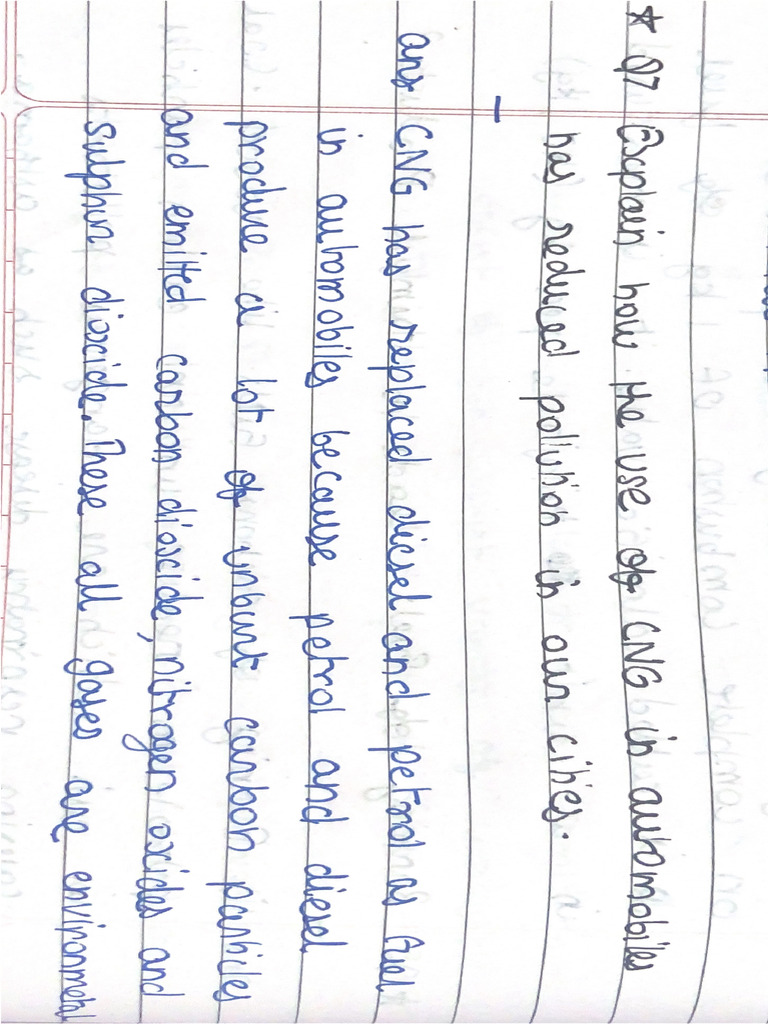 * Q7 Explain how the use of CNG in automobiles
has reduced pollution in our cities.
ans CNG has replaced diesel and petrol as fuel
in automobiles because petrol and diesel
produce a lot of unburt carbon particles
and emitted carbon dioxide, nitrogen oxides and
sulphur dioxide. These all gases are environmetal